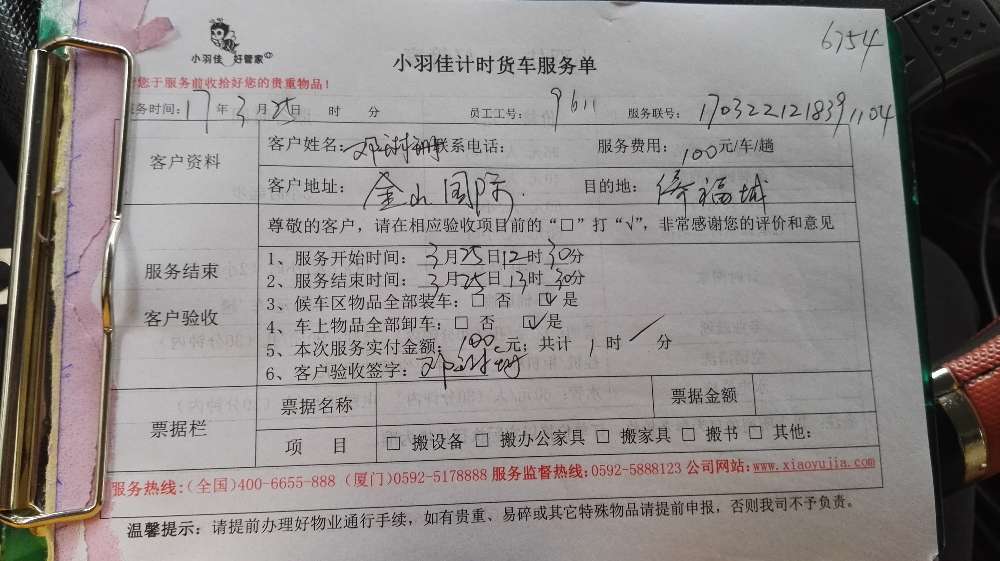 6754
小羽佳 好管家
小羽佳计时货车服务单
您于服务前收拾好您的贵重物品！
务时间：17年3月25日 时 分 员工工号：9611 服务联号：170322121839 1104
客户资料
客户姓名：邓 联系电话： 服务费用：100元/车/趟
客户地址：金山国际 目的地：福城
尊敬的客户，请在相应验收项目前的“□”打“√”，非常感谢您的评价和意见
服务结束
客户验收
1、服务开始时间：3月25日12时30分
2、服务结束时间：3月25日13时30分
3、候车区物品全部装车：□ 否 ☑是
4、车上物品全部卸车：□ 否 ☑是
5、本次服务实付金额：100元；共计 1 时 / 分
6、客户验收签字：邓
票据栏
票据名称 票据金额
项 目 □ 搬设备 □ 搬办公家具 □ 搬家具 □ 搬书 □ 其他：
服务热线：(全国)400-6655-888 (厦门)0592-5178888 服务监督热线：0592-5888123 公司网站：www.xiaoyujia.com
温馨提示：请提前办理好物业通行手续，如有贵重、易碎或其它特殊物品请提前申报，否则我司不予负责。